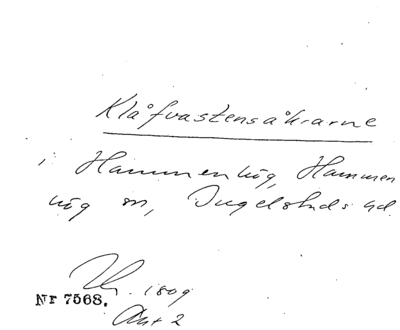 Klåfvastensåkrarne
i Hammenhög, Hammen
hög sn, Ingelstads hd.
Nr 7568.
1809
Akt 2